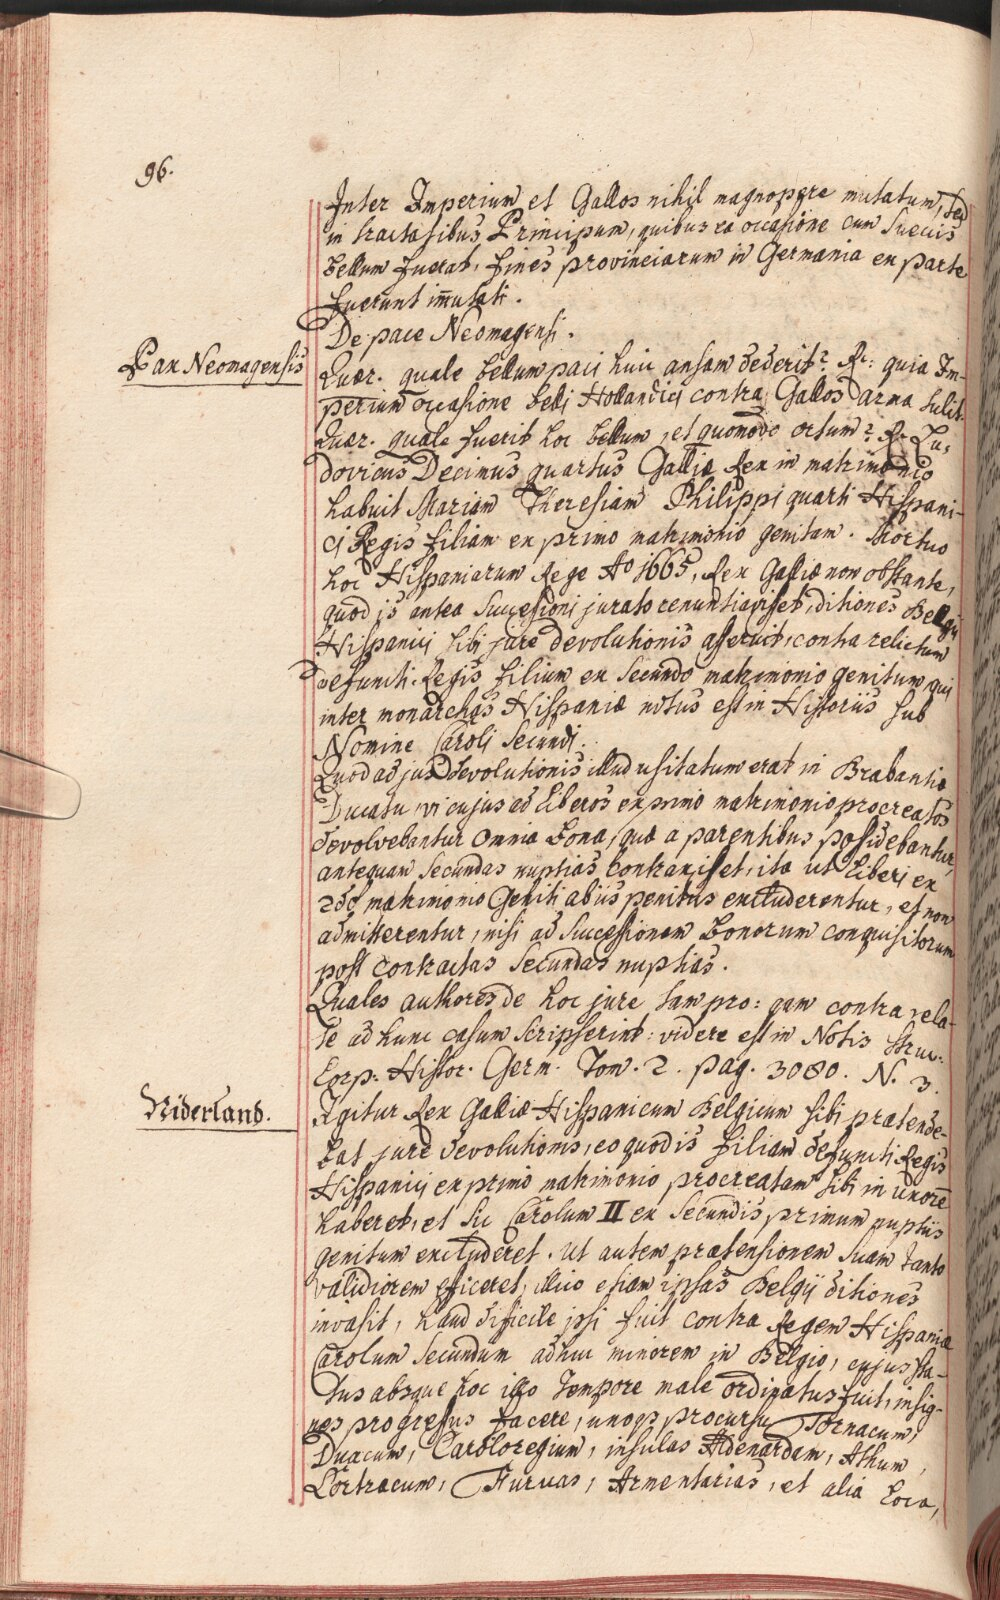 96.
Inter Imperium et Gallos nihil magnopere mutatum, sed
in tractatibus Principum, quibus ea occasione cum Suecis
bellum fuerat, fines provinciarum in Germania ex parte
fuerunt im̄utati.
De pace Neomagensi.
Pax Neomagensis
Quær. quale bellum paci huic ansam dederit? R: quia Im-
perium occasione belli Hollandici contra Gallos arma tulit.
Quær. quale fuerit hoc bellum, et quomodo ortum? R. Lu-
dovicus Decimus quartus Galliæ Rex in matrimonio
habuit Mariam Theresiam Philippi quarti Hispani-
ci Regis filiam ex primo matrimonio genitam. Mortuo
hoc Hispaniarum Rege Ao 1665, Rex Galliæ non obstante,
quod is antea Successioni jurato renuntiavisset, ditiones Belgij
Hispanici sibi jure devolutionis asseruit, contra relictum
defuncti Regis filium ex Secundo matrimonio genitum qui
inter monarchas Hispaniæ notus est in Historiis sub
Nomine Caroli Secundi.
Quod ad jus devolutionis illud usitatum erat in Brabantiæ
Ducatu vi cujus ad liberos ex primo matrimonio procreatos
devolvebantur omnia bona, quæ a parentibus possidebantur,
antequam Secundas nuptias contraxisset, ita ut liberi ex
2do matrimonio Geniti ab iis penitus excluderentur, et non
admitterentur, nisi ad Successionem bonorum conquisitorum
post contractas Secundas nuptias.
Quales authores de hoc jure tam pro: qam contra rela-
te ad hunc casum scripserint: videre est in Notis Struv:
Corp: Histor. Germ. Tom. 2. pag. 3080. N. 3.
Niderland.
Igitur Rex Galliæ Hispanicum Belgicum sibi prætende-
bat jure devolutionis, eo quod is filiam defuncti Regis
Hispanici ex primo matrimonio procreatam sibi in uxorē
haberet, et sic Carolum II ex Secundis primum nuptiis
genitum excluderet. Ut autem prætensionem suam tanto
validiorem efficeret, illico etiam ipsas Belgij ditiones
invasit, haud difficile ipsi fuit contra Regem Hispaniæ
Carolum Secundum adhuc minorem in Belgio, cujus sta-
tus absque hoc illo tempore male ordinatus fuit, insig-
nes progressus facere, unoqȝ procursu Tornacum,
Duacum, Caroloregium, insulas Aldenardam, Athum,
Cortracum, Furnas, Armentarias, et alia loca,